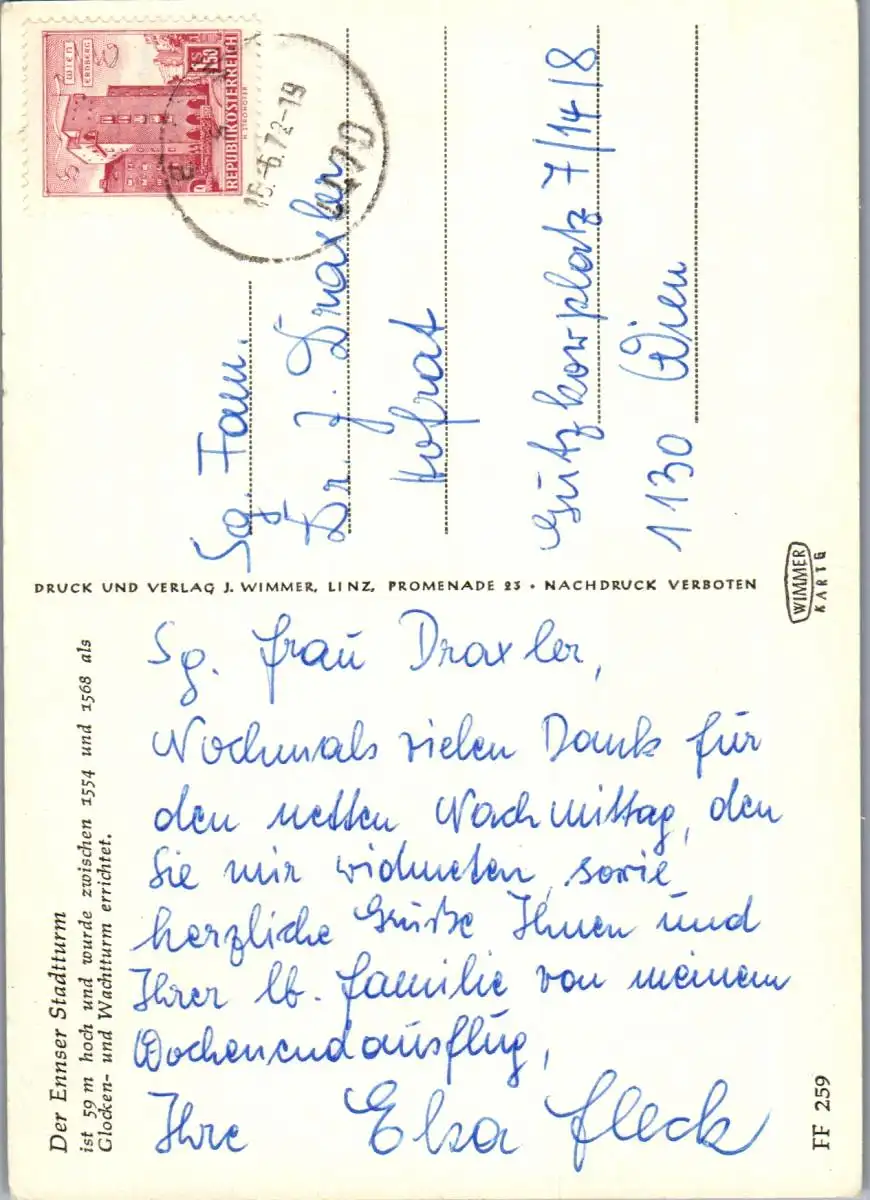 WIEN
ERDBERG
S 1.50
REPUBLIK ÖSTERREICH
H. STROHOFER
6.72-19
4470
Sg. Fam.
Dr. J. Draxler
Hofrat
Gutzkowplatz 7/14/8
1130 Wien
DRUCK UND VERLAG J. WIMMER, LINZ, PROMENADE 23 • NACHDRUCK VERBOTEN
WIMMER
KARTE
Der Ennser Stadtturm
ist 59 m hoch und wurde zwischen 1554 und 1568 als
Glocken- und Wachtturm errichtet.
Sg. Frau Draxler,
Nochmals vielen Dank für
den netten Nachmittag, den
Sie mir widmeten, sowie
herzliche Grüße Ihnen und
Ihrer lb. Familie von meinem
Wochenendausflug,
Ihre Elsa Fleck
FF 259